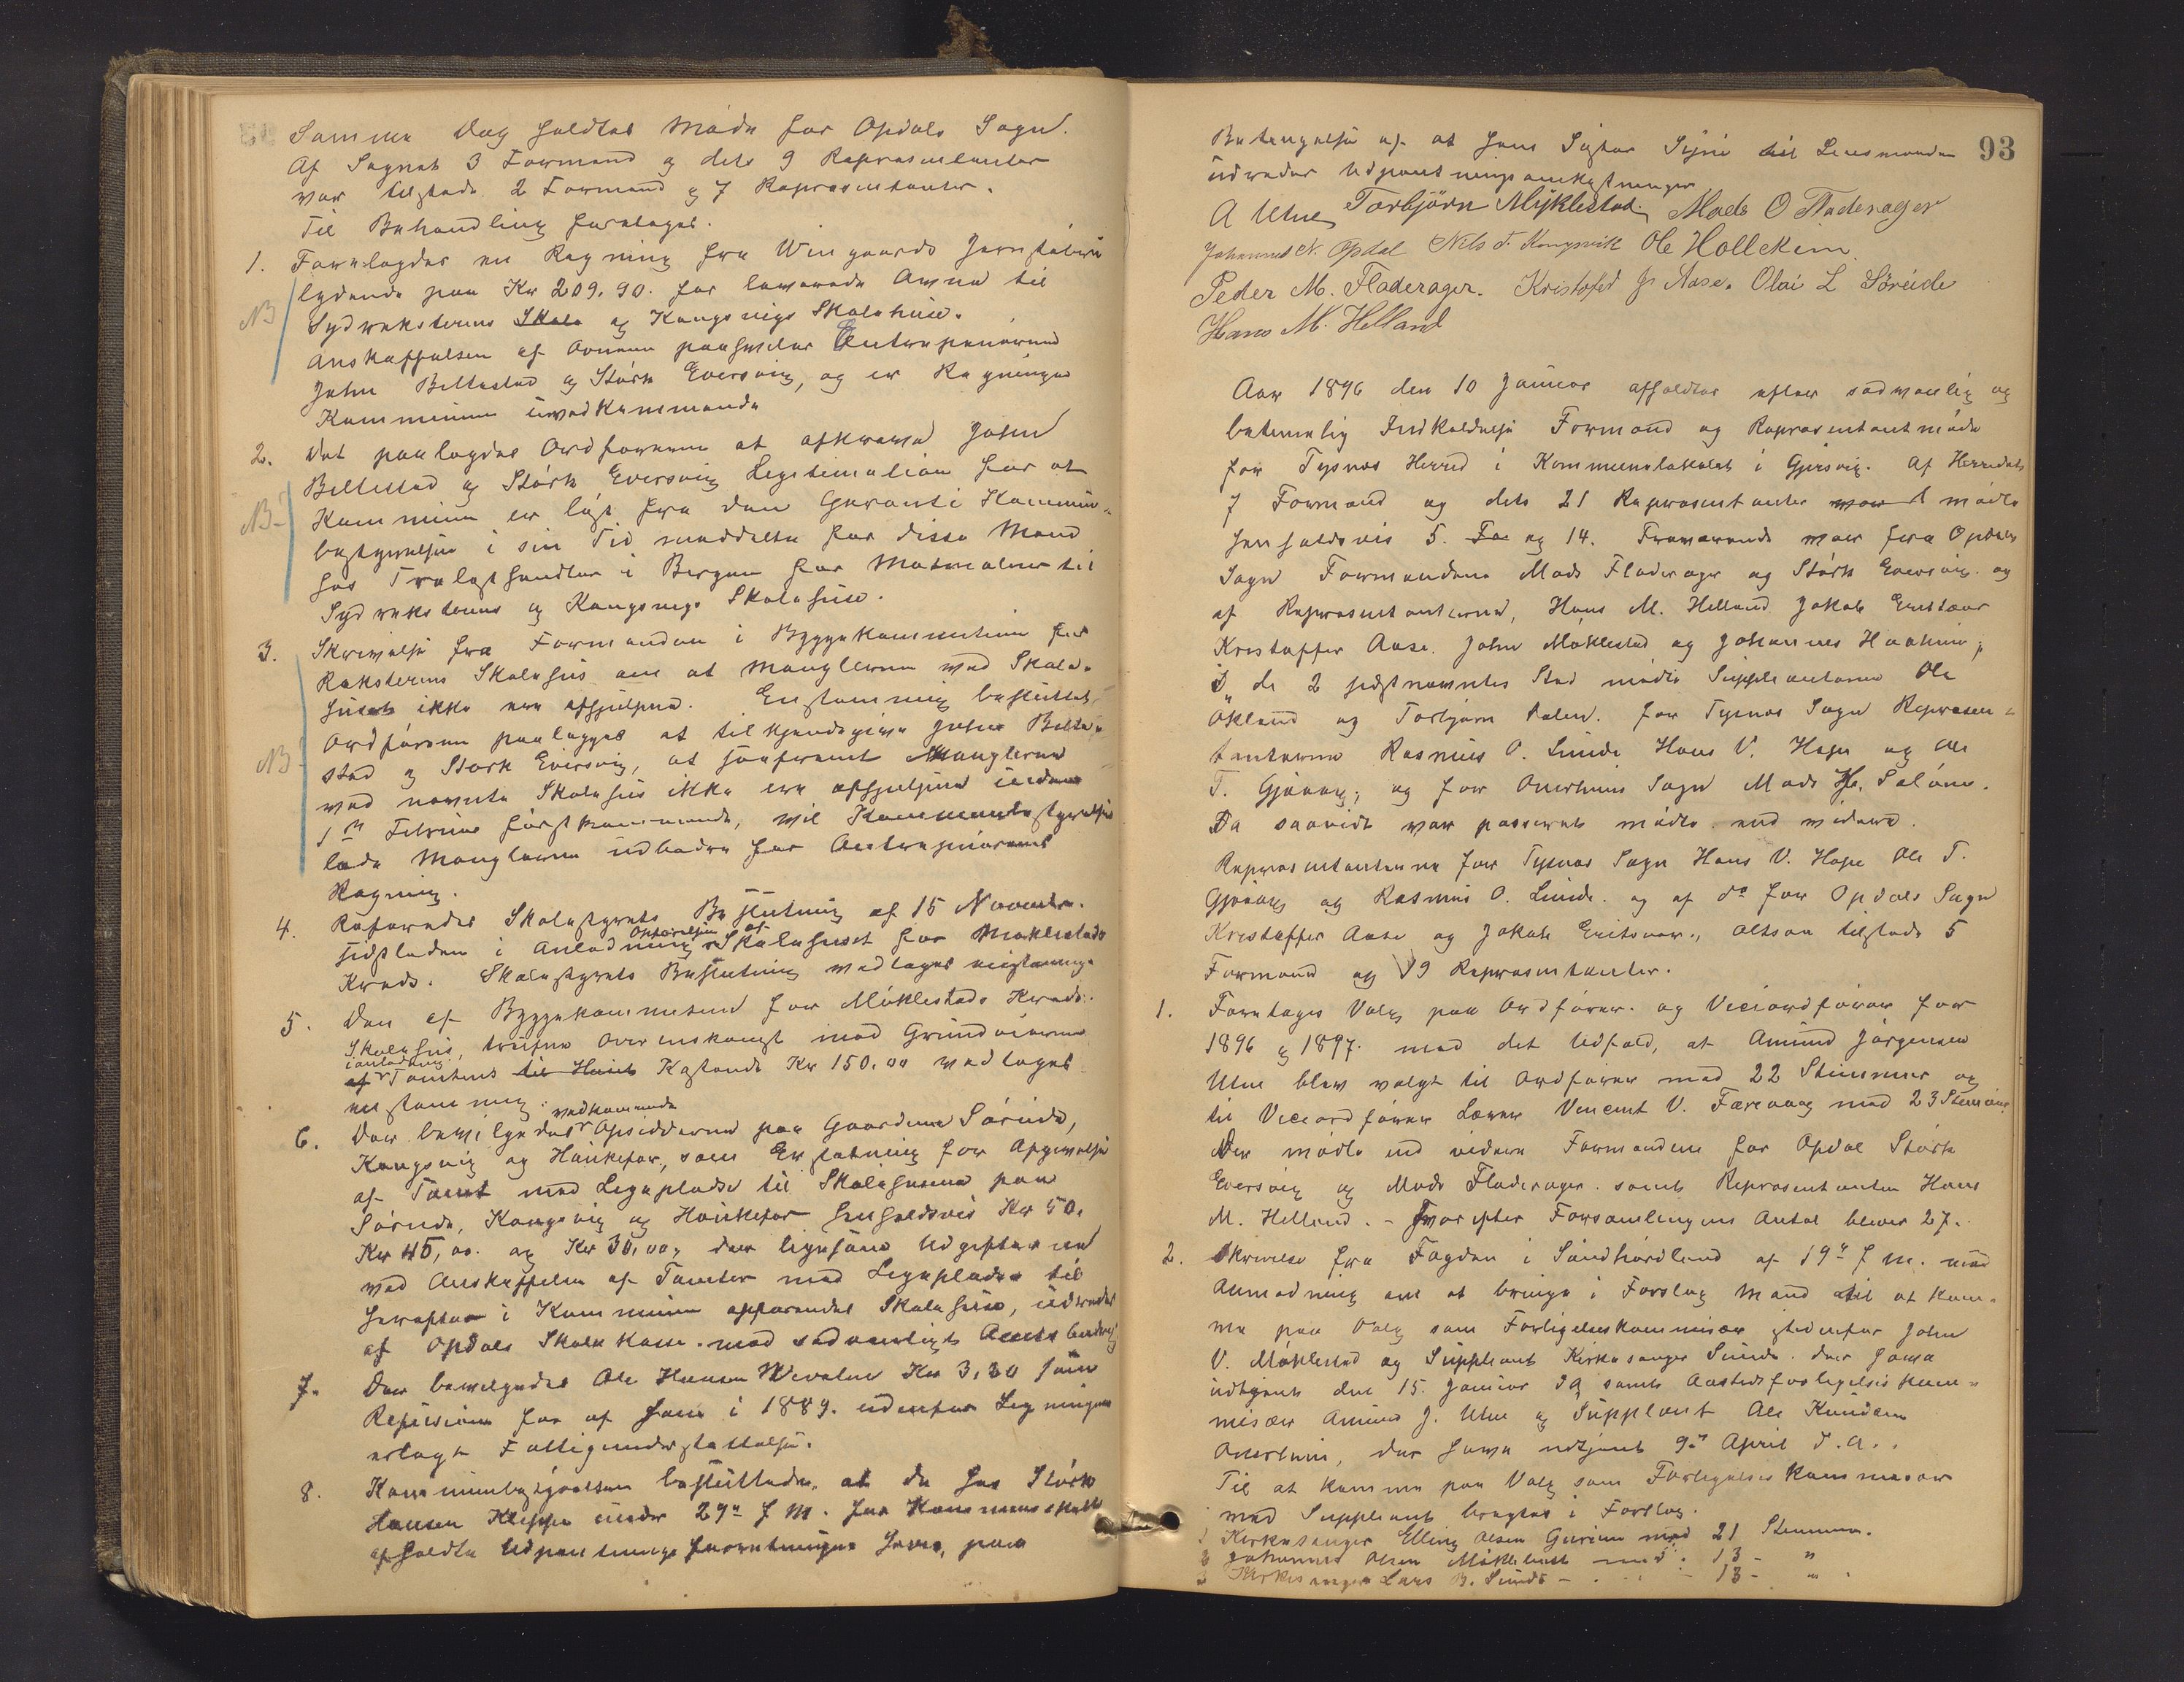 Samme Dag holdtes Møde for Opdals Sogn.
Af Sognets 3 Formænd og dets 9 Repræsentanter
var tilstede 2 Formænd og 7 Repræsentanter.
Til Behandling foretoges.
1. Forelagdes en Regning fra Wingaards Jernstøberi
lydende paa Kr 209.90. for leverede Ovne til
NB Sydreksterens Skole og Kongsvigs Skolehuse.
Anskaffelsen af Ovnene paahviler Entreprenørerne
John Beltestad og Størk Eversvig, og er Regningen
Kommunen uvedkommende
2. Det paalagdes Ordføreren at afkræve John
Beltestad og Størk Eversvig Legitimation for at
NB- Kommunen er løst fra den Garanti Kommune-
bestyrelsen i sin Tid meddelte for disse Mænd
hos Trælasthandler i Bergen for Materialier til
Sydreksterens og Kongsvigs Skolehuse.
3. Skrivelse fra Formanden i Byggekommiteen for
Reksterens Skolehus om at Manglerne ved Skole-
huset ikke ere afhjulpne. Enstemmig besluttet
Ordføreren paalægges at tilkjendegive John Belte-
NB- stad og Størk Eversvig, at saafremt Manglerne
ved nævnte Skolehus ikke ere afhjulpne inden
1ste Februar førstkommende, vil Kommunebestyrelsen
lade Manglerne udbedre for Entreprenørernes
Regning.
4. Refereredes Skolestyrets Beslutning af 15 November
sidstleden i Anledning Opførelse af Skolehuset for Møklestads
Kreds. Skolestyrets Beslutning vedtoges enstemmig.
5. Den af Byggekommiteen for Møklestads Kreds.
Skolehus, trufne Overenskomst med Grundeierne
i anledning
af Tomtens til Huset Kostende Kr 150.00 vedtoges
enstemmig. vedkommende
6. Der bevilgedes Opsidderne paa Gaardene Søreide,
Kongsvig og Haukefær, som Erstatning for Afgivelse
af Tomt med Legeplads til Skolehusene paa
Søreide, Kongsvig og Haukefær henholdsvis Kr 50.
Kr 45,00. og Kr 30,00, der ligesom Udgifterne
ved Anskaffelse af Tomter med Legepladse til
herefter i Kommunen opførendes Skolehuse, udredes
af Opdals Skolekasse. med sedvanligt Amtsbidrag
7. Der bevilgedes Ole Hansen Wevatne Kr 3,20 som
Refusion for af ham i 1889. udenfor Ligningen
erlagt Fattigunderstøttelse.
8. Kommunebestyrelsen besluttede, at de hos Størk
Hansen Kleppe under 29de f. M. for Kommuneskatt
afholdte Udpantningsforretninger hæves, paa
93
Betingelse af at hans Svigersøn til Lensmanden
udreder Udpantningsomkostninger
A Utne Torbjörn Mÿklestad. Mads O Fladerager
Johannes N. Opdal Nils T. Kongsvik Ole Hollekim.
Peder M. Fladerager. Kristofer J. Aase. Olai L Søreide
Hans M. Helland
Aar 1896 den 10 Januar afholdtes efter sedvanlig og
betimelig Indkaldelse Formand og Repræsentantmøde
for Tysnes Herred i Kommunelokalet i Gjersvig. Af Herredets
7 Formænd og dets 21 Repræsentanter var d mødte
henholdsvis 5. Fo og 14. Fraværende var fra Opdals
Sogn Formændene Mads Fladerager og Størk Eversvig og
af Repræsentanterne, Hans M. Helland Jakob Ereksen
Kristoffer Aase. John Møklestad og Johannes Haaheim;
i de 2 sidstnævntes Sted mødte Suppleanterne Ole
Økland og Torbjørn Dalen. for Tysnes Sogn Repræsen-
tanterne Rasmus O. Lunde Hans V. Hope og Ole
T. Gjøvaag; og for Onarheims Sogn Mads H. Seløen.
Da saavidt var passeret mødte end videre.
Repræsentanterne for Tysnes Sogn Hans V. Hope Ole T.
Gjøvaag og Rasmus O. Lunde. og af do for Opdals Sogn
Kristoffer Aase og Jakob Ereksen., altsaa tilstede 5
Formænd og 19 Repræsentanter.
1. Foretoges Valg paa Ordfører. og Viceordfører for
1896 og 1897. med det Udfald, at Amund Jørgensen
Utne blev valgt til Ordfører med 22 Stemmer og
til Viceordfører Lærer Vincent V. Færevaag med 23 Stemmer
Der mødte end videre Formændene for Opdal Størk
Eversvig og Mads Fladerager. samt Repræsentanten Hans
M. Helland. - Hvorefter Forsamlingens Antal blever 27.
2. Skrivelse fra Fogden i Søndhordland af 19de f. m. med
Anmodning om at bringe i Forslag Mænd til at kom-
me paa Valg som Forligelseskommissær istedenfor John
V. Møklestad og Suppleant Kirkesanger Lunde. der have
udtjent den 15. Januar d.a. samt Aastedsforligelseskom-
missær Amund J. Utne og Suppleant Ole Knudsen
Onarheim, der have udtjent 9de April d.a..
Til at komme paa Valg som Forligelseskommissær
med Suppleant bragtes i Forslag.
1 Kirkesanger Elling Olsen Gurine med 21 Stemmer.
2 Johannes Olsen Møklebust med. 13 - "
3 Kirkesanger Lars B. Lunde - . . . - 13 - " .